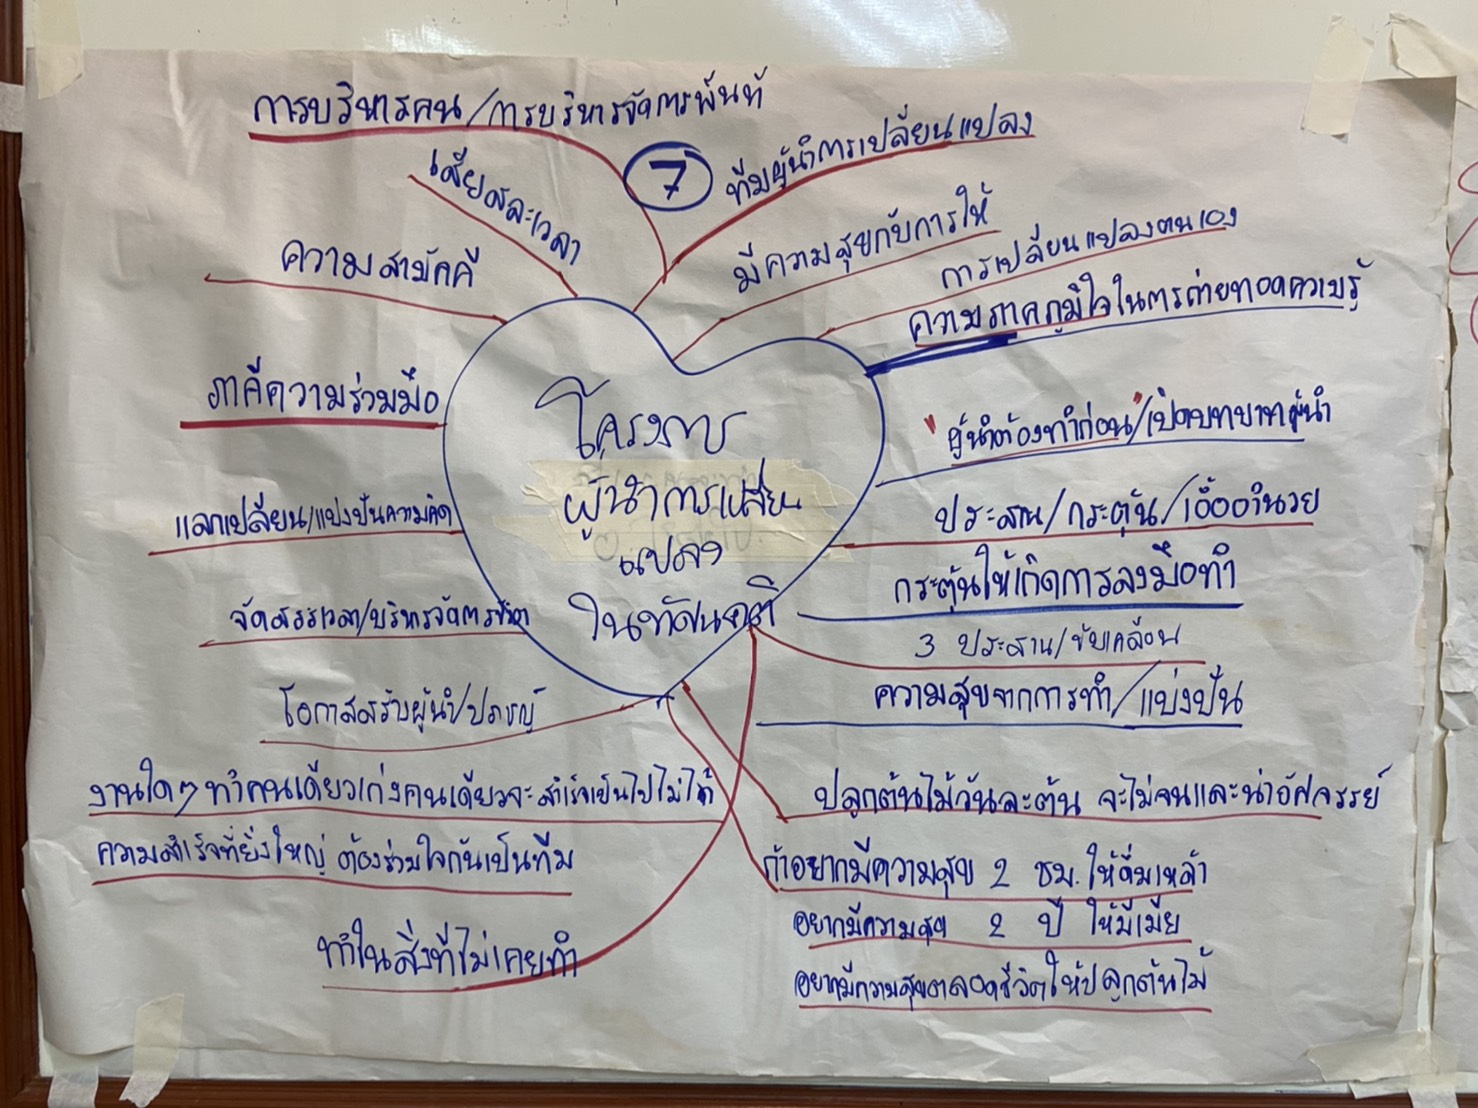 การบริหารคน/การบริหารจัดการพื้นที่
7
ทีมผู้นำการเปลี่ยนแปลง
เสียสละเวลา
มีความสุขกับการให้
ความสามัคคี
การเปลี่ยนแปลงตนเอง
ความภาคภูมิใจในการถ่ายทอดความรู้
ภาคีความร่วมมือ
"ผู้นำต้องทำก่อน"/เปิดบทบาทผู้นำ
โครงการ
ผู้นำการเปลี่ยน
แปลง
ในทัศนคติ
แลกเปลี่ยน/แบ่งปันความคิด
ประสาน/กระตุ้น/เอื้ออำนวย
กระตุ้นให้เกิดการลงมือทำ
จัดสรรเวลา/บริหารจัดการชีวิต
3 ประสาน/ขับเคลื่อน
โอกาสสรับผู้นำ/ปราชญ์
ความสุขจากการทำ/แบ่งปัน
งานใดๆ ทำคนเดียวเก่งคนเดียวจะสำเร็จเป็นไปไม่ได้
ความสำเร็จที่ยิ่งใหญ่ ต้องร่วมใจกันเป็นทีม
ทำในสิ่งที่ไม่เคยทำ
ปลูกต้นไม้วันละต้น จะไม่จนและน่าอัศจรรย์
ถ้าอยากมีความสุข 2 ชม. ให้ดื่มเหล้า
อยากมีความสุข 2 ปี ให้มีเมีย
อยากมีความสุขตลอดชีวิตให้ปลูกต้นไม้